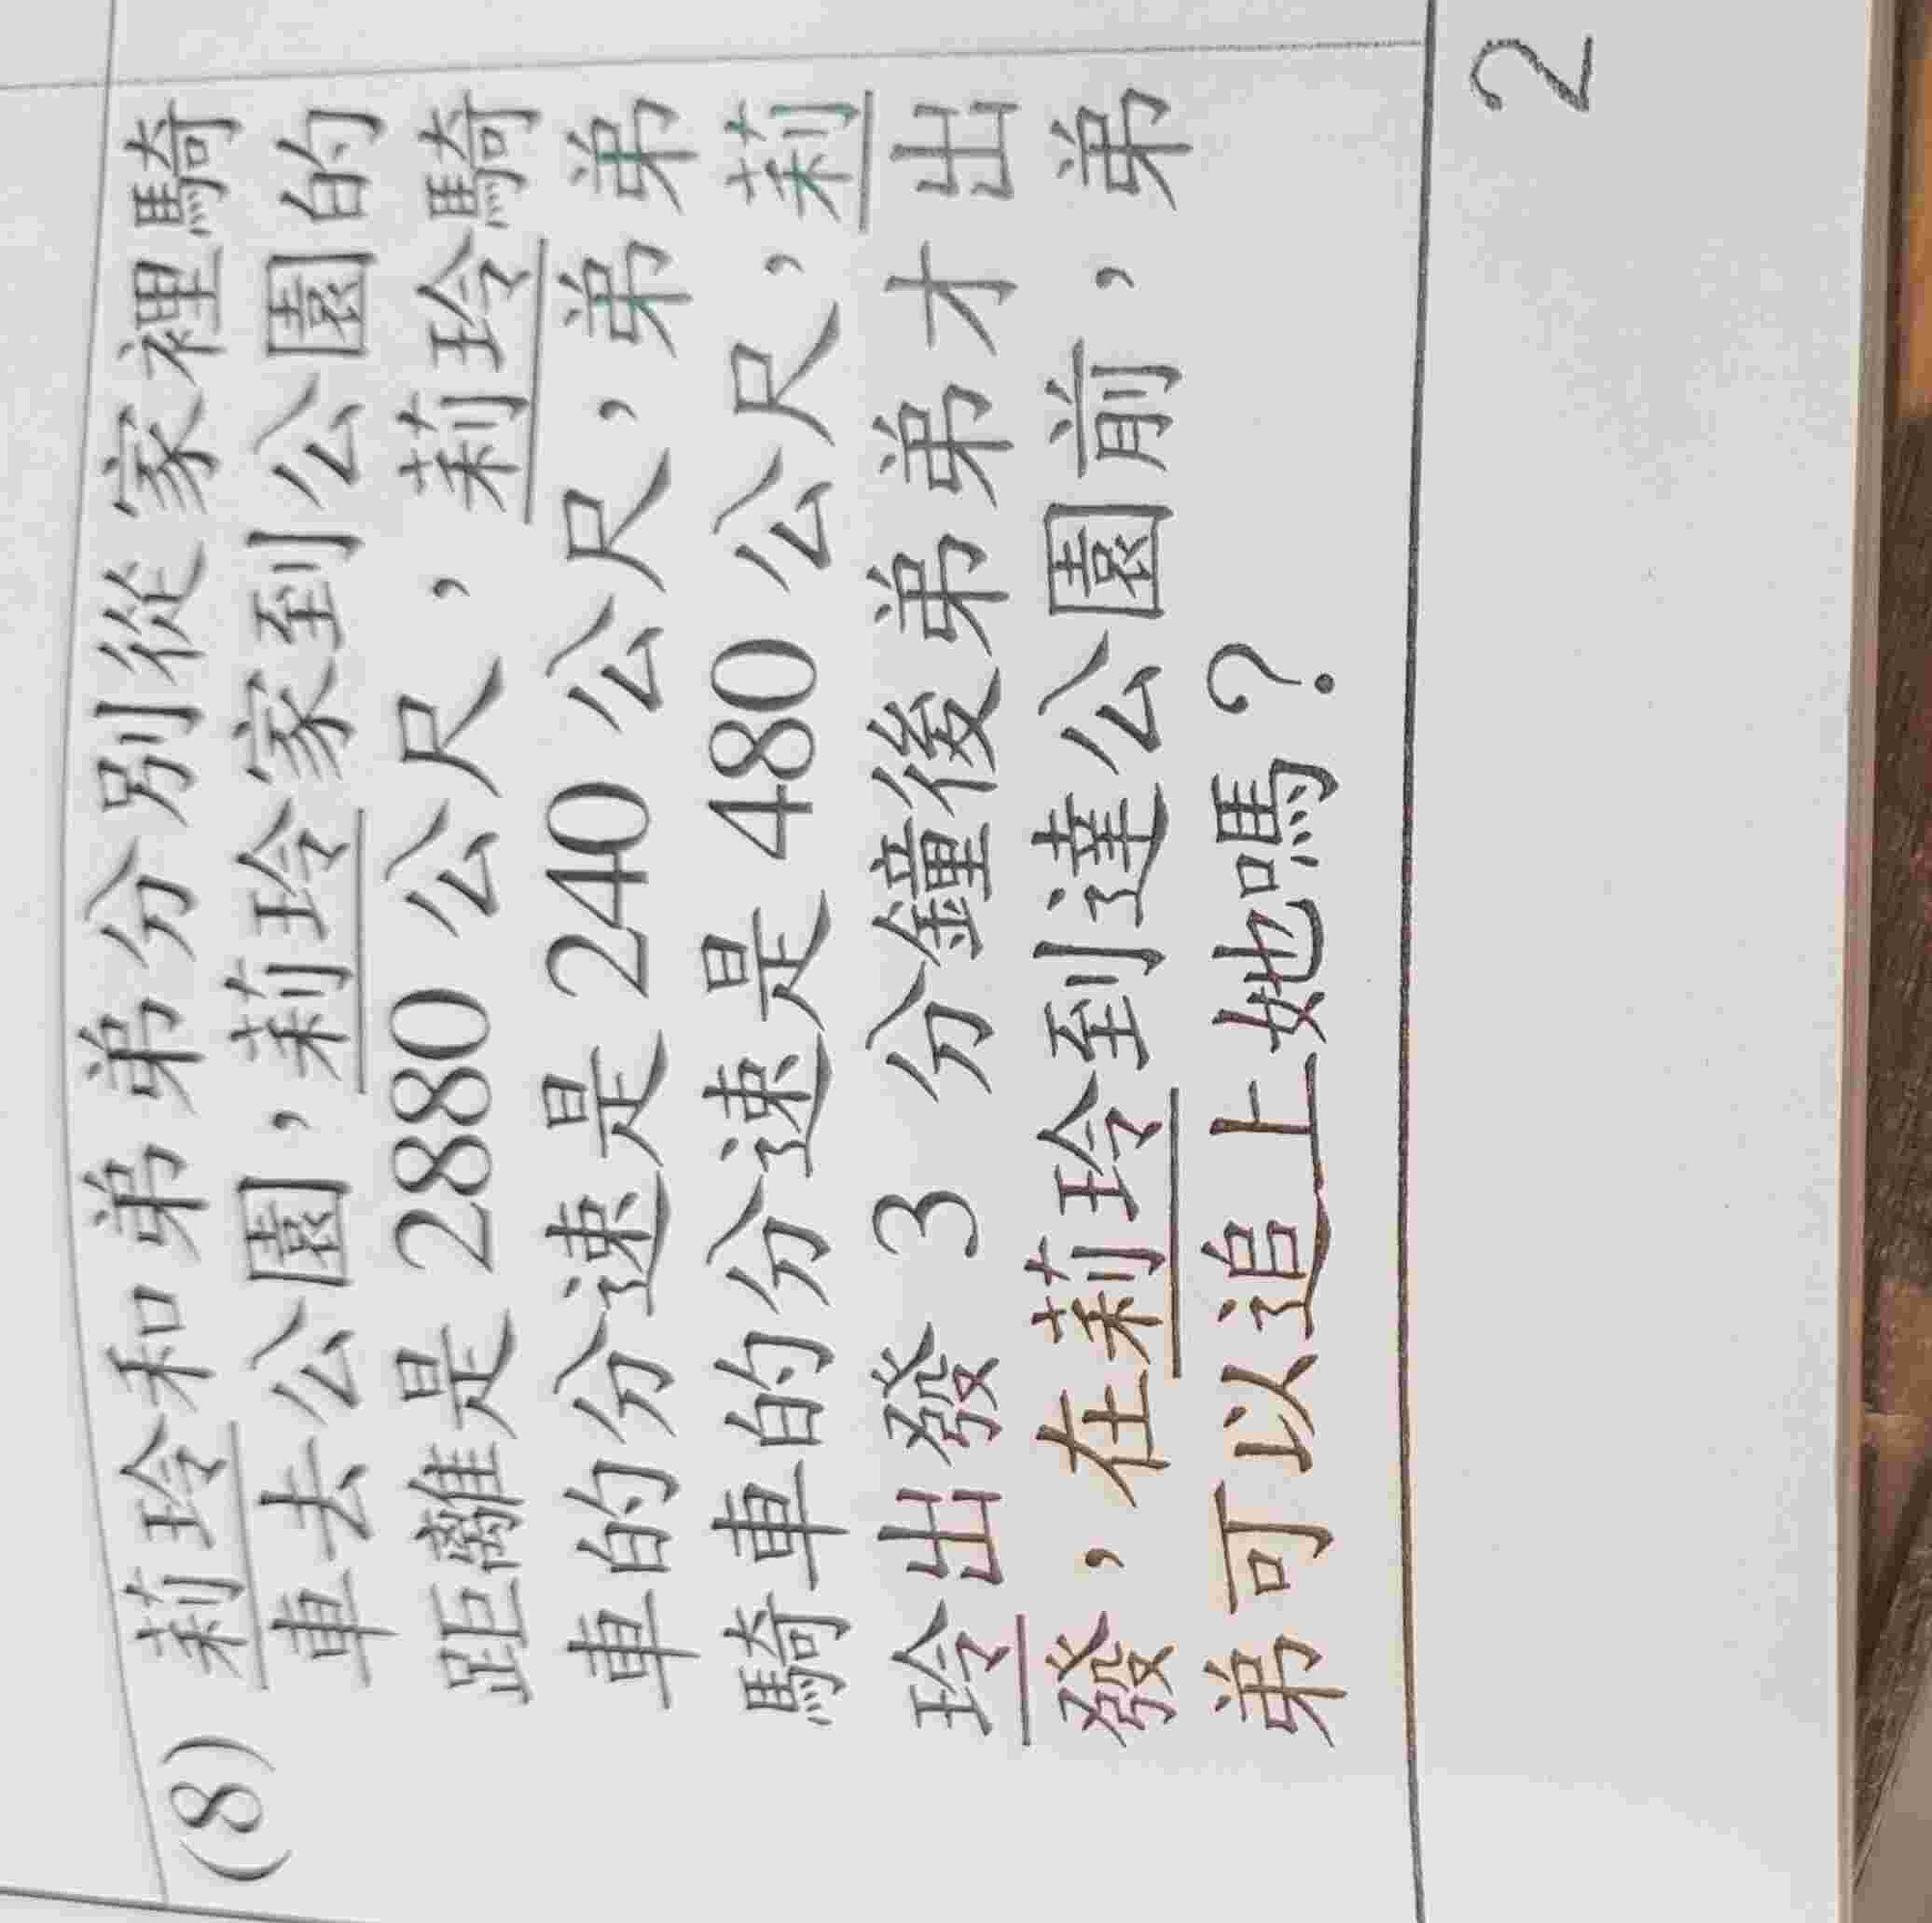 (8) 莉玲和弟弟分別從家裡騎
車去公園，莉玲家到公園的
距離是 2880 公尺，莉玲騎
車的分速是 240 公尺，弟弟
騎車的分速是 480 公尺，莉
玲出發 3 分鐘後弟弟才出
發，在莉玲到達公園前，弟
弟可以追上她嗎？
2